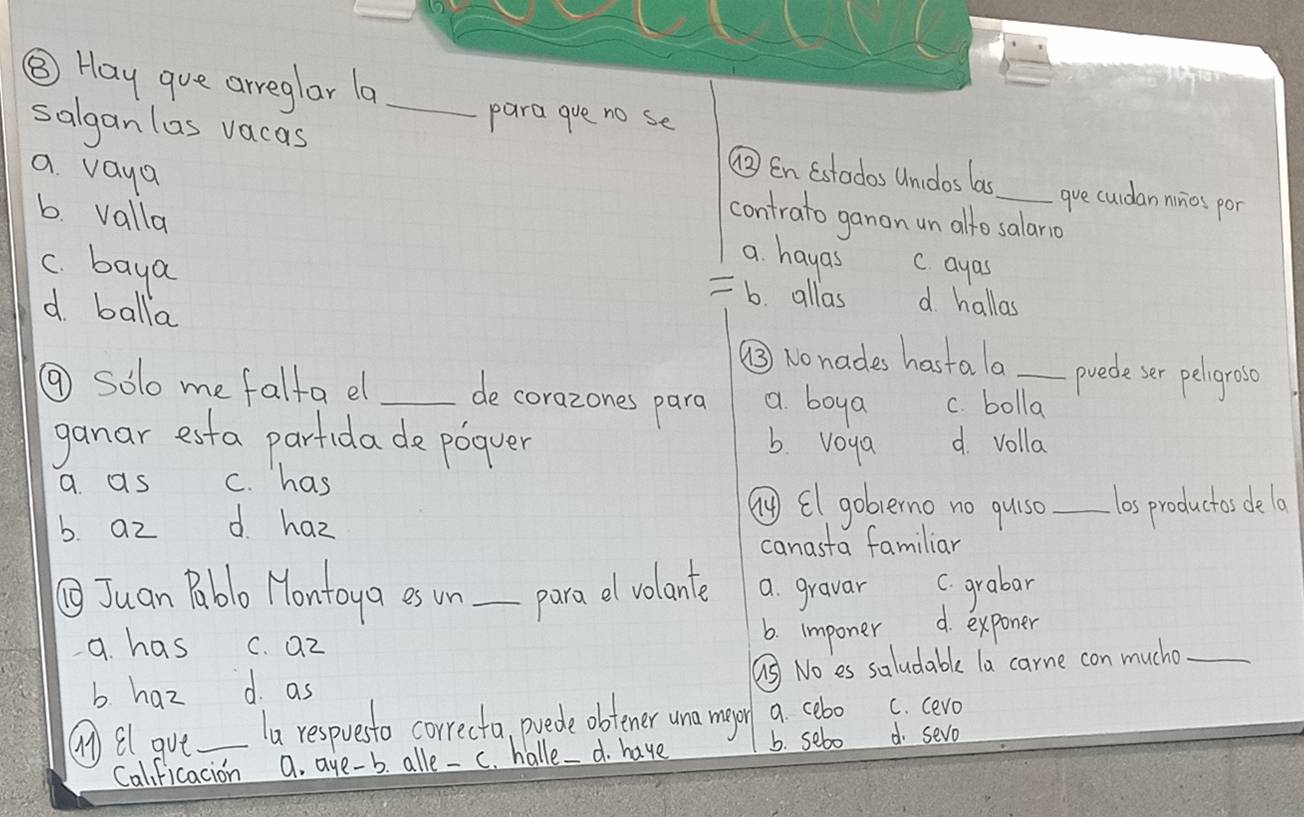 ⑧ Hay que arreglar la ____ para que no se
salgan las vacas
a. vaya
b. valla
c. baya
d. balla
⑨ Sólo me falta el ____ de corazones para
ganar esta partida de póquer
a. as c. has
b. az d. haz
⑩ Juan Pablo Montoya es un ___ para el volante
a. has c. az
b. haz d. as
⑪ El que ___ la respuesta correcta, puede obtener una mejor
Calificación a. aye - b. alle - c. halle - d. haye
⑫ En Estados Unidos las ____ que cuidan niños por
contrato ganan un alto salario
a. hayas c. ayas
= b. allas d. hallas
⑬ No nades hasta la ___ puede ser peligroso
a. boya c. bolla
b. voya d. volla
⑭ El gobierno no quiso ____ los productos de la
canasta familiar
a. gravar c. grabar
b. imponer d. exponer
⑮ No es saludable la carne con mucho ____
a. cebo c. cevo
b. sebo d. sevo